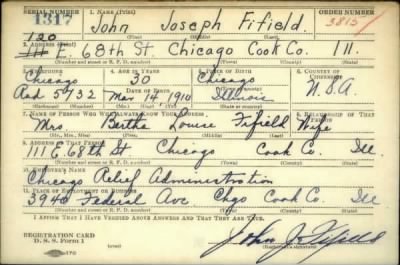 SERIAL NUMBER 1. NAME (Print) ORDER NUMBER
1317 John Joseph Fifield 3815
(First) (Middle) (Last)
120
2. ADDRESS (Print)
111 E. 68th St. Chicago Cook Co. Ill.
(Number and street or R. F. D. number) (Town) (County) (State)
3. TELEPHONE 4. AGE IN YEARS 5. PLACE OF BIRTH 6. COUNTRY OF CITIZENSHIP
Chicago 30 Chicago
DATE OF BIRTH U.S.A.
Rad 5732 Mar 1910 Illinois
(Exchange) (Number) (Mo.) (Day) (Yr.) (State or country)
7. NAME OF PERSON WHO WILL ALWAYS KNOW YOUR ADDRESS 8. RELATIONSHIP OF THAT PERSON
Mrs. Bertha Louise Fifield Wife
(Mr., Mrs., Miss) (First) (Middle) (Last)
9. ADDRESS OF THAT PERSON
111 E 68th St Chicago Cook Co. Ill
(Number and street or R. F. D. number) (Town) (County) (State)
10. EMPLOYER'S NAME
Chicago Relief Administration
11. PLACE OF EMPLOYMENT OR BUSINESS
3940 Federal Ave Chgo Cook Co. Ill
(Number and street or R. F. D. number) (Town) (County) (State)
I AFFIRM THAT I HAVE VERIFIED ABOVE ANSWERS AND THAT THEY ARE TRUE.
REGISTRATION CARD
D. S. S. Form 1 John J Fifield
(Registrant's signature)